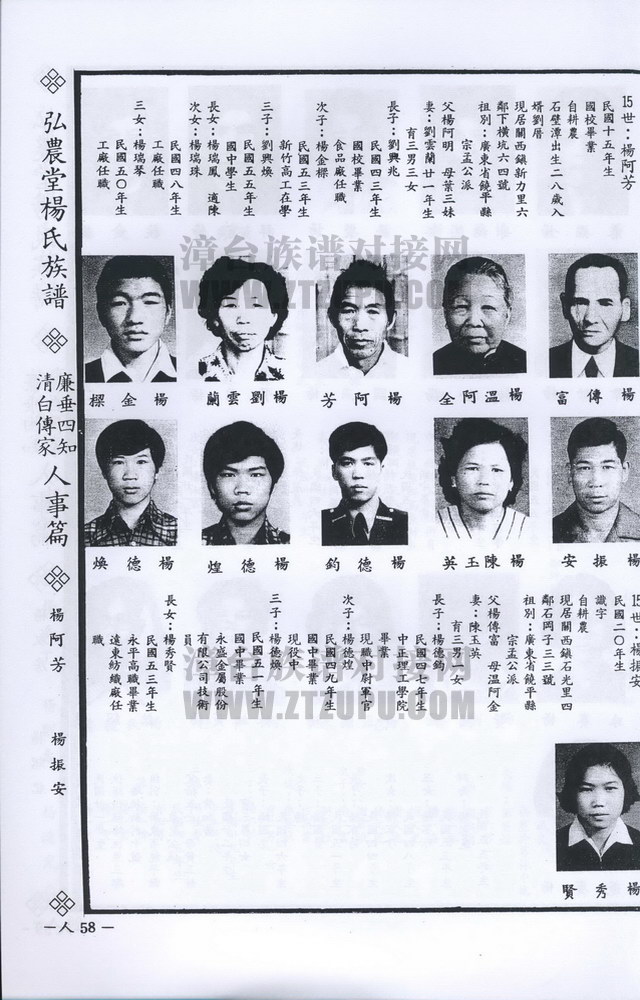 15世：楊阿芳
民國十五年生
國校畢業
自耕農
石壁潭出生二八歲入
婿劉厝
現居關西鎮新力里六
鄰下橫坑六四號
祖別：廣東省饒平縣
宗孟公派
父楊阿明　母葉三妹
妻：劉雲蘭廿一年生
育三男三女
長子：劉興兆
民國四三年生
國校畢業
食品廠任職
次子：楊金樑
民國五三年生
新竹高工在學
三子：劉興煥
民國五五年生
國中學生
長女：楊瑞鳳　適陳
次女：楊瑞珠
民國四八年生
工廠任職
三女：楊瑞琴
民國五〇年生
工廠任職
楊傳富
楊溫阿全
楊阿芳
楊劉雲蘭
楊金樑
楊振安
楊陳玉英
楊德鈞
楊德煌
楊德煥
15世：楊振安
民國二〇年生
識字
自耕農
現居關西鎮石光里四
鄰石岡子三三號
祖別：廣東省饒平縣
宗孟公派
父楊傳富　母溫阿全
妻：陳玉英
育三男一女
長子：楊德鈞
民國四七年生
中正理工學院
畢業
現職中尉軍官
次子：楊德煌
民國四九年生
國中畢業
現役中
三子：楊德煥
民國五一年生
國中畢業
永盛金屬股份
有限公司技術
員
長女：楊秀賢
民國五三年生
永平高職畢業
遠東紡織廠任
職
楊秀賢
弘農堂楊氏族譜
廉垂四知
清白傳家
人事篇
楊阿芳
楊振安
—人 58—
漳台族谱对接网
WWW.ZTZUPU.COM
漳台族谱对接网
WWW.ZTZUPU.COM